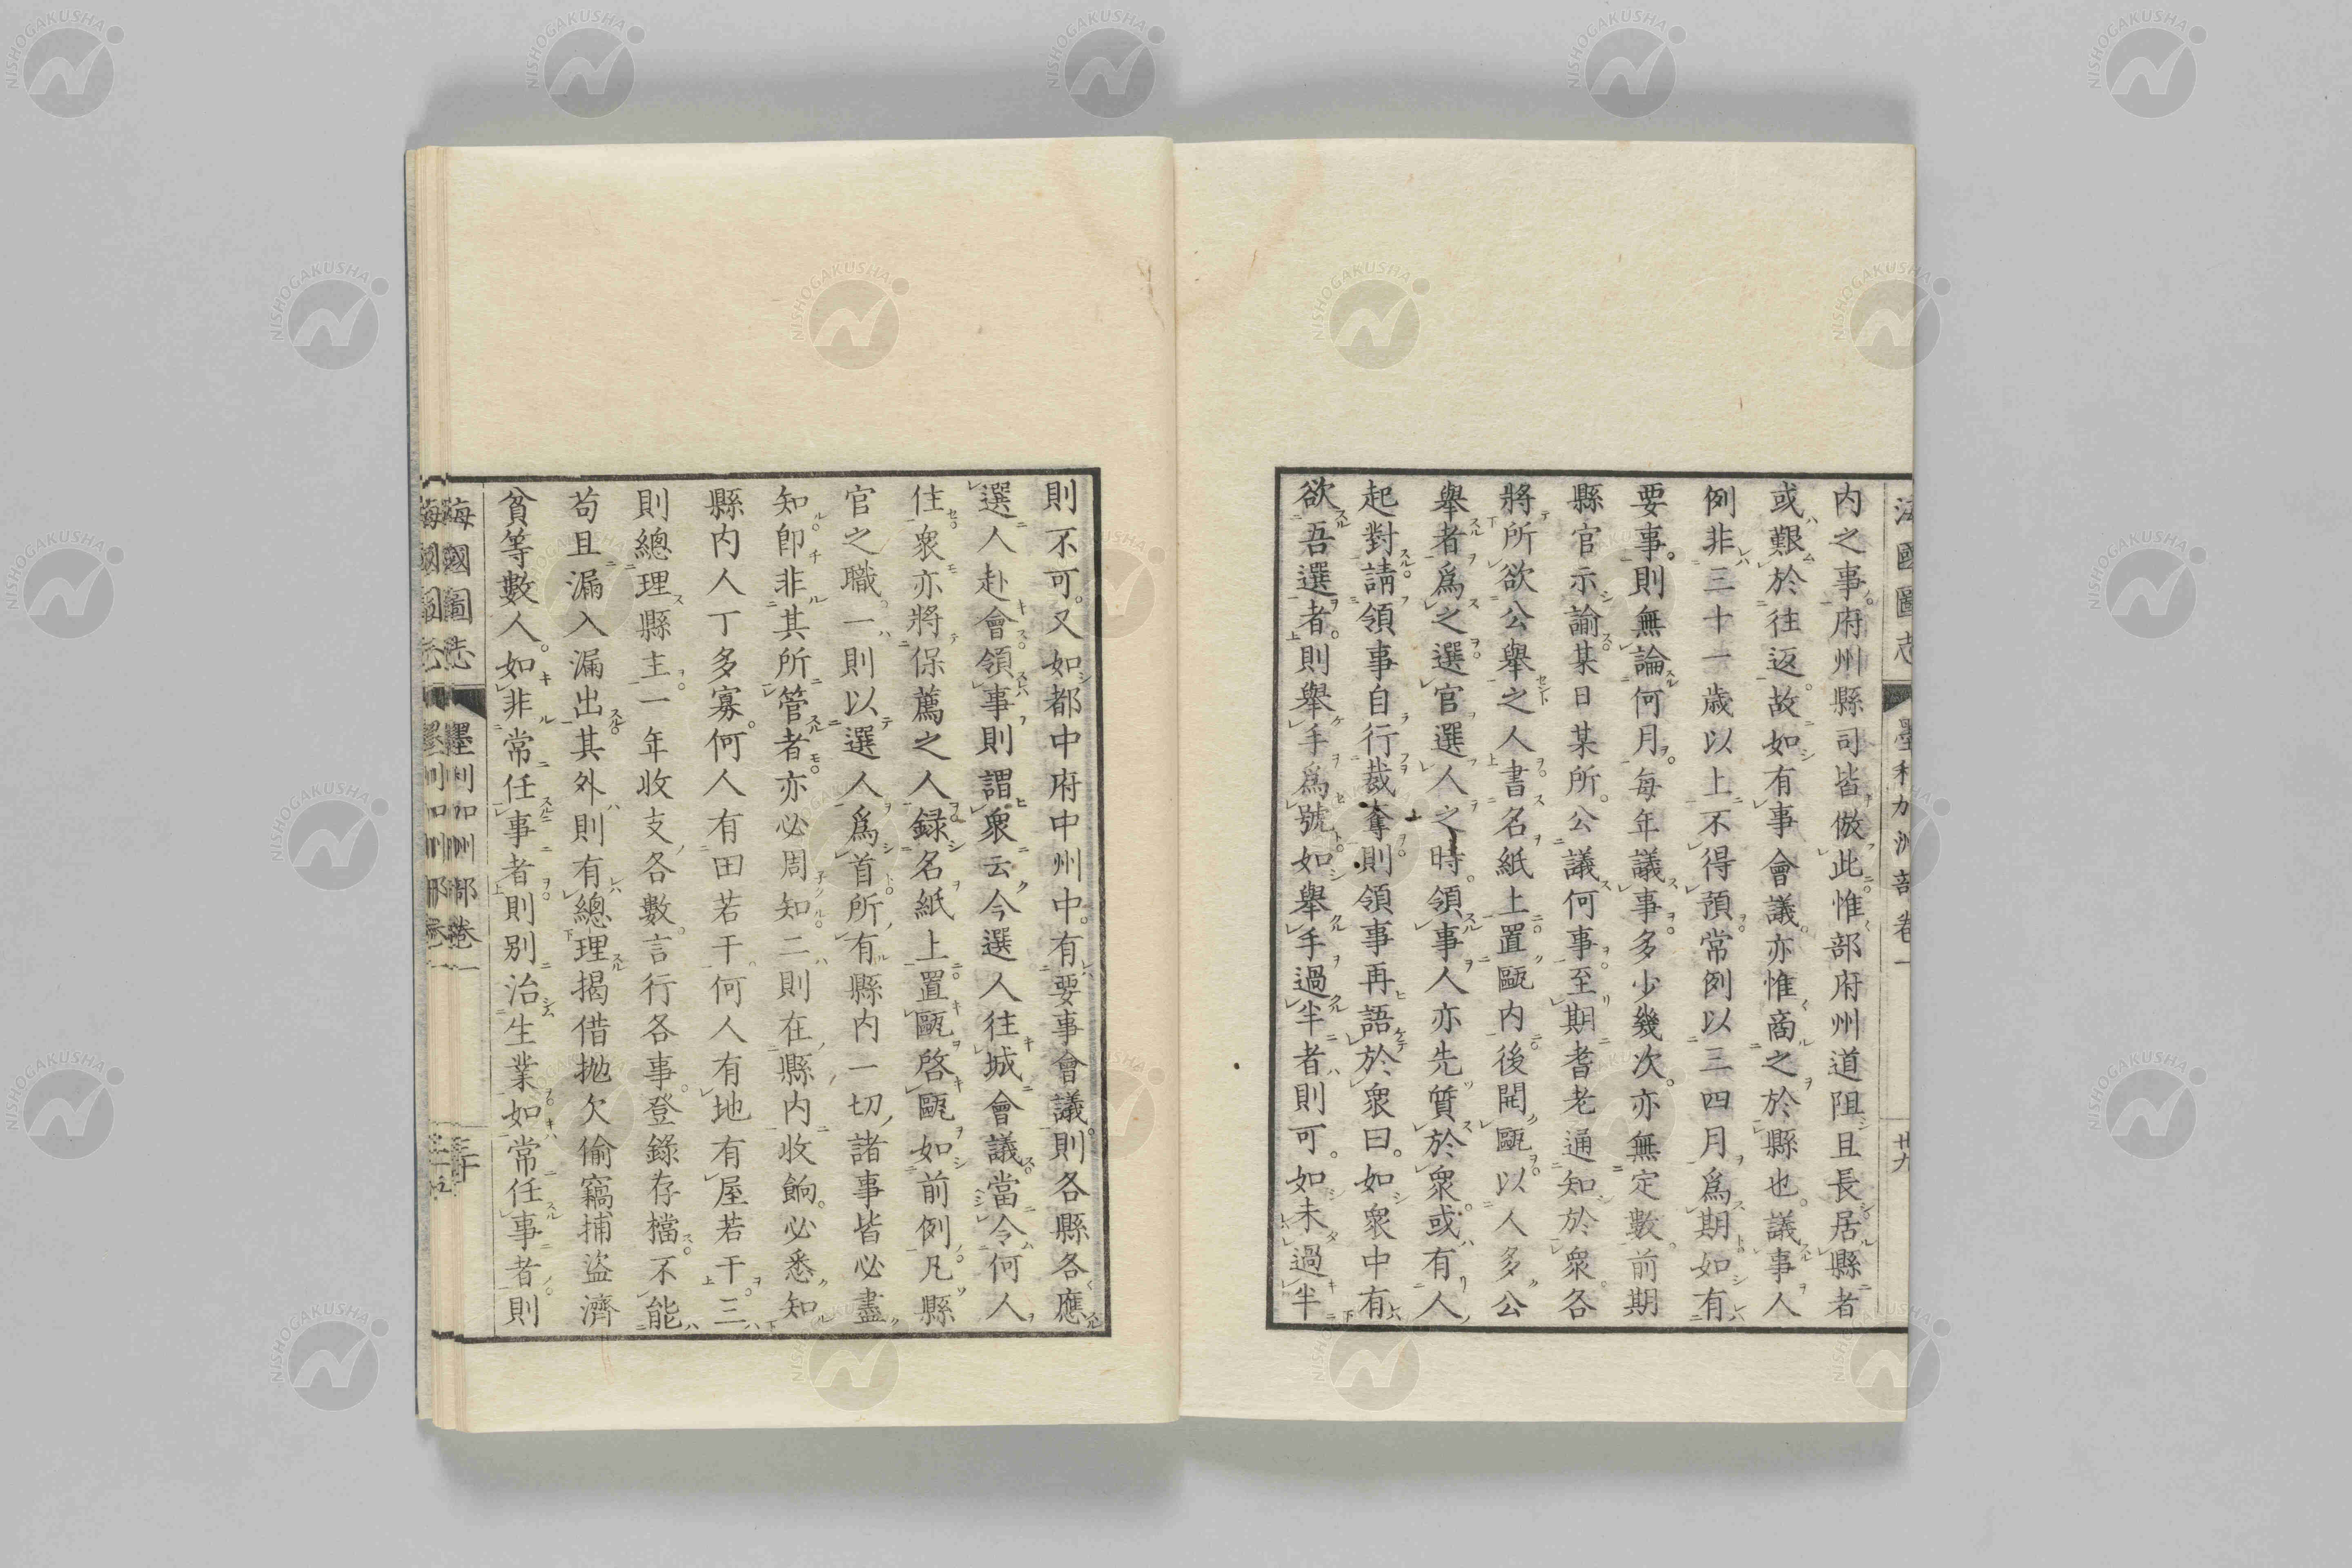 海國圖志 墨利加洲部卷一 廿九
内之事。府州縣司皆倣此。惟部府州道阻且長。居縣者
或艱於往返。故如有事會議。亦惟商之於縣也。議事人
例非三十一歳以上不得預。常例以三四月爲期。如有
要事。則無論何月。每年議事。多少幾次。亦無定數。前期
縣官示諭。某日某所。公議何事。至期耆老通知於衆。各
將所欲公舉之人。書名紙上。置甌内。後開甌。以人多公
舉者爲之。選官選人之時。領事人亦先質於衆。或有人
起對。請領事自行裁奪。則領事再語於衆曰。如衆中有
欲吾選者。則舉手爲號。如舉手過半者則可。如未過半
則不可。又如都中府中州中。有要事會議。則各縣各應
選人赴會。領事則謂衆云。今選人往城會議。當令何人
住。衆亦將保薦之人。録名紙上。置甌。啓甌如前例。凡縣
官之職。一則以選人爲首。所有縣内一切諸事。皆必盡
知。卽非其所管者。亦必周知。二則在縣内收餉。必悉知
縣内人丁多寡。何人有田若干。何人有地有屋若干。三
則總理縣主。一年收支各數。言行各事。登錄存檔。不能
苟且漏入漏出。其外則有總理揭借抛欠偷竊捕盜濟
貧等數人。如非常任事者。則別治生業。如常任事者。則
海國圖志 墨利加洲部卷一 三十